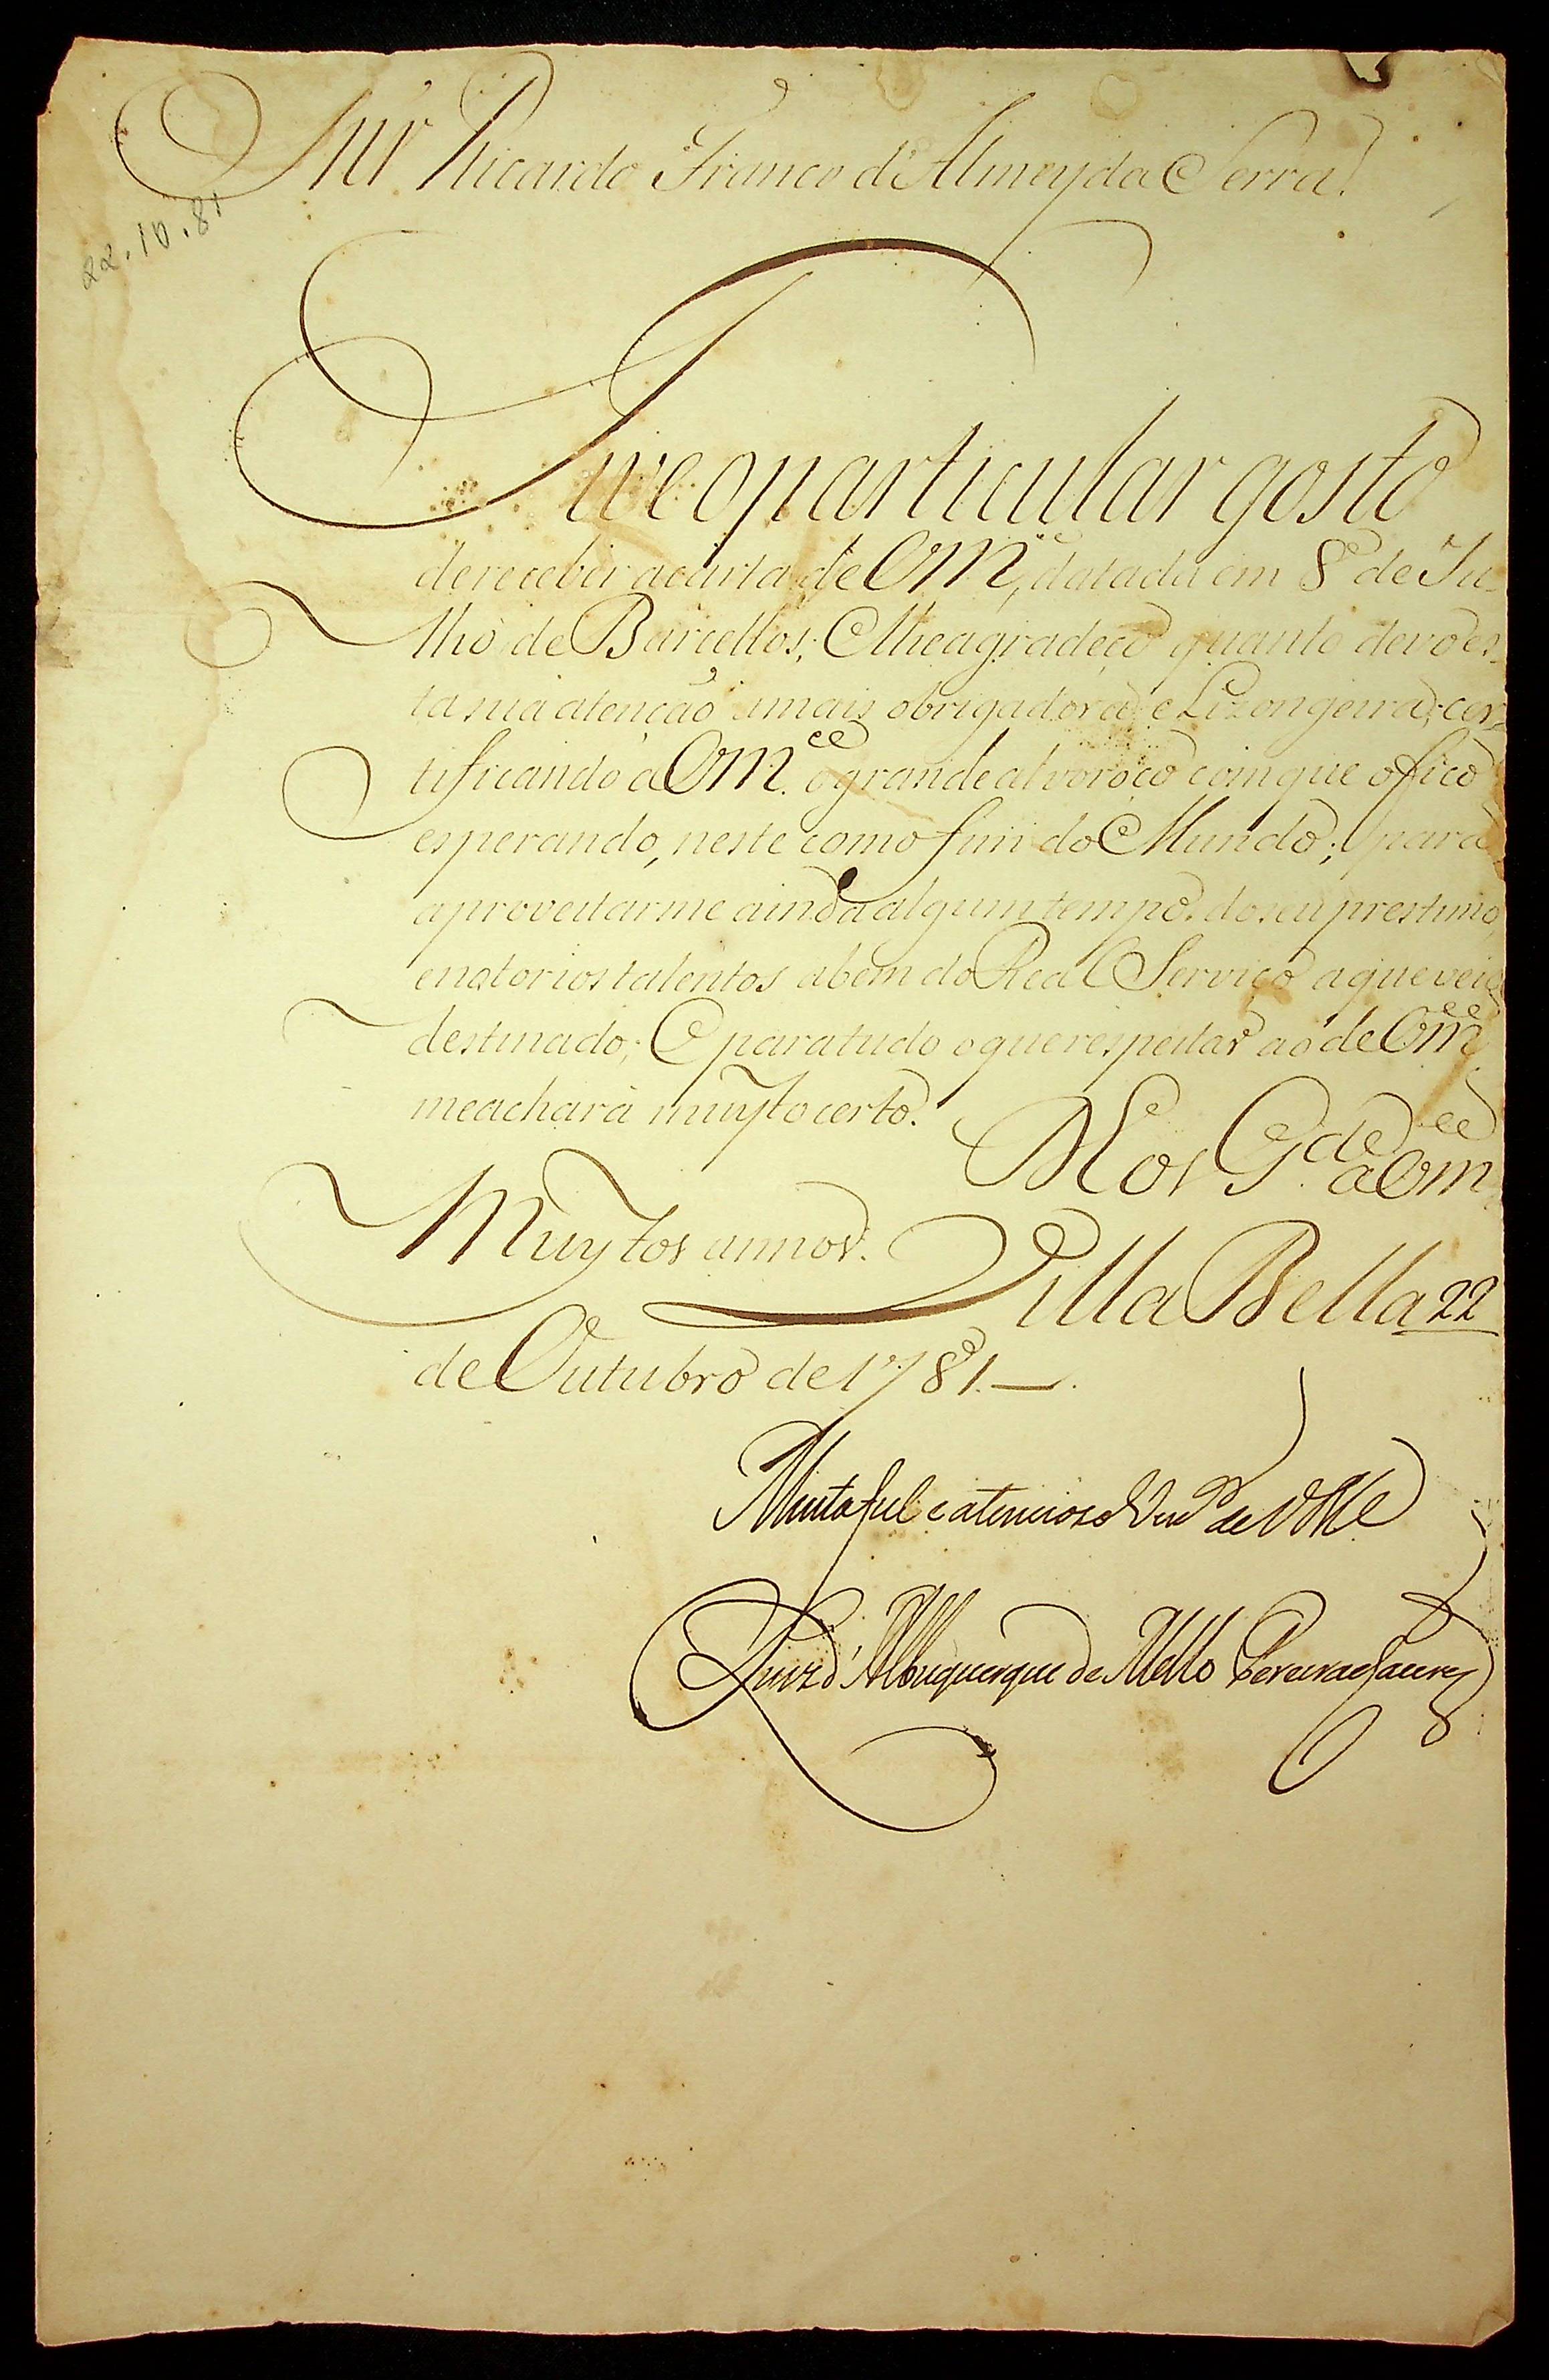 Snr. Ricardo Franco d'Almeyda Serra.
22.10.81
Tive o particular gosto
de receber a carta de Vm.ce, datada em 8 de Ju-
lho de Barcellos; E lhe agradeço quanto devo es-
ta sua atenção mais obrigadora, e Lizongeira; cer-
tificando a Vm.ce o grande alvoroço com que o fico
esperando, neste como fim do Mundo; para
aproveitarme ainda algum tempo do seu prestimo,
e notorios talentos a bem do Real Serviço a que veio
destinado; E para tudo o que respeitar ao de Vm.ce
me achará muyto certo. N Sor G.de a Vm.ce
Muytos annos. Villa Bella 22
de Outubro de 1781.—
Muito fiel e atencioso Ven.or de VMce
Luiz d'Albuquerque de Mello Pereira e Caceres